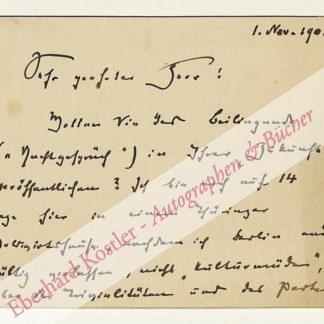 1. Nov. 190
Sehr geehrter Herr!
Wollen Sie das beiliegende
("Nachtgespräch") in Ihrer "Zukunft"
veröffentlichen? Ich bin auf 14
Tage hier in einem Thüringer
nachdem ich Berlin end
gültig verlassen, nicht "kulturmüde",
der Trivialitäten und des
Eberhard Köstler - Autographen & Bücher